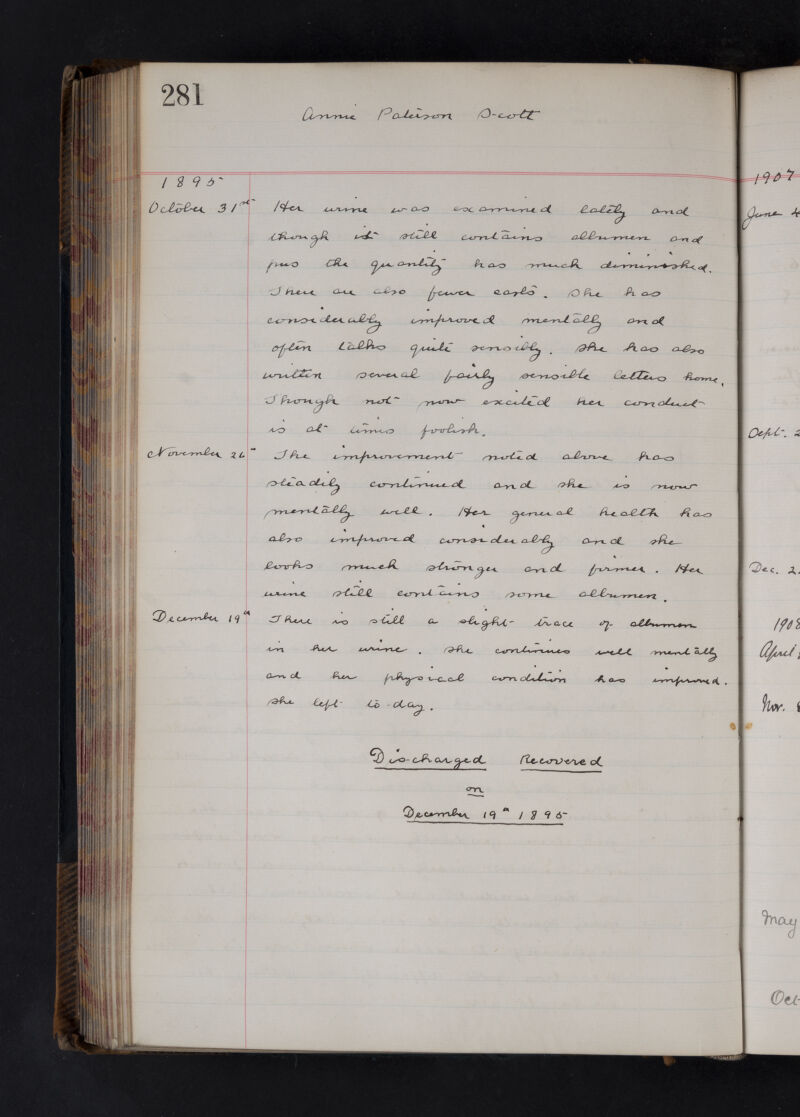 281
Annie Paterson Scott
1895
October 31st Her urine was examined lately and
though it still contains albumen and
pus the quantity has much diminished.
There are also fewer casts. She has
considerably improved mentally and
often talks quite sensibly. She has also
written several fairly sensible letters home.
Though not now excited her conduct
is at times foolish.
November 26th The improvement noted above has
steadily continued and she is now
mentally well. Her general health has
also improved considerably and she
looks much stronger and firmer. Her
urine still contains some albumen.
December 19th There is still a slight trace of albumen
in her urine. She continues well mentally
and her physical condition has improved.
She left to-day.
Discharged Recovered
on
December 19th 1895
1907
June 4
Sept. 2
Dec. 2
1908
April
Nov. 8
May
Oct